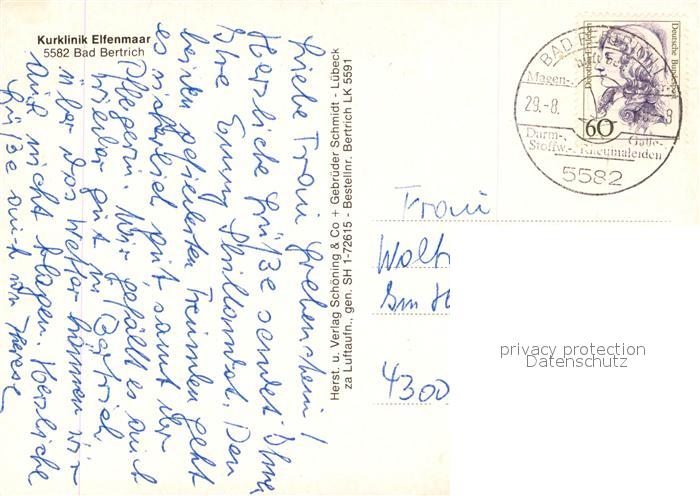 Kurklinik Elfenmaar
5582 Bad Bertrich
Liebe Frau Grebenstein!
Herzliche Grüße sendet Ihnen
Ihre Emmy. Den
beiden Freunden geht
es sicherlich gut samt der
Pflegerin. Mir gefällt es auch
wieder gut in Bertrich
über das Wetter können wir
auch nicht klagen. Herzliche
Grüße auch von Therese
Herst. u. Verlag Schöning & Co + Gebrüder Schmidt - Lübeck
za Luftaufn., gen. SH 1-72615 - Bestellnr. Bertrich LK 5591
BAD BERTRICH
Magen-,
29.-8.
Darm-,
Galle-,
Stoffw.-, Rheumaleiden
5582
Deutsche Bundespost
60
Frau
Walt
4300
privacy protection
Datenschutz